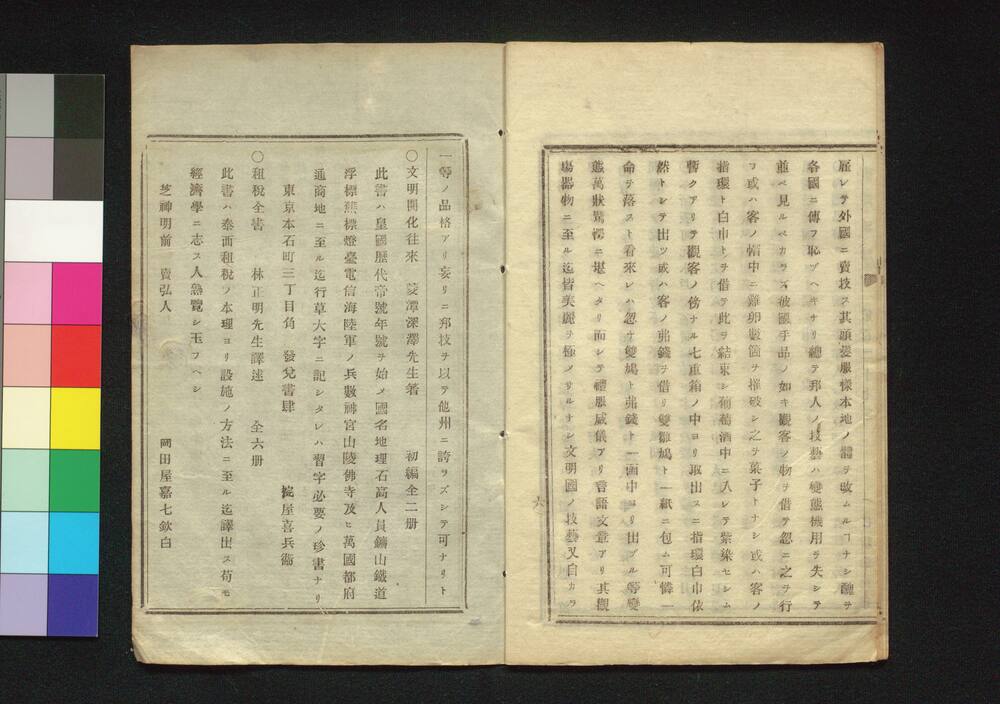 雇レテ外國ニ賣技ス其頭髮服樣本地ノ體ヲ改ムルヿナシ醜ヲ
各國ニ傳フ恥ヅヘキナリ總テ邦人ノ技藝ハ變態機用ヲ失シテ
並ベ見ルベカラズ彼國手品ノ如キ觀客ノ物ヲ借テ忽ニ之ヲ行
フ或ハ客ノ帽中ニ雞卵數箇ヲ摧破シ之ヲ菓子トナシ或ハ客ノ
指環ト白巾トヲ借テ此ヲ結束シ葡萄酒中ニ入レテ紫染セシム
暫クアリテ觀客ノ傍ナル七重箱ノ中ヨリ取出スニ指環白巾依
然トシテ出ツ或ハ客ノ弗錢ヲ借リ雙雛鳩ト一紙ニ包ム可憐一
命ヲ落スト看來レハ忽チ雙鳩ト弗錢ト一函中ヨリ出ブル等變
態萬狀驚愕ニ堪ヘタリ而シテ禮服威儀アリ言語文章アリ其觀
場器物ニ至ル迄皆美麗ヲ極メサルナシ文明國ノ技藝又自カラ
六
一等ノ品格アリ妄リニ邦技ヲ以テ他州ニ誇ラズシテ可ナリト
〇文明開化往來 菱潭深澤先生著 初編全二册
此書ハ皇國歷代帝號年號ヲ始メ國名地理石高人員鑛山鐵道
浮標蕉標燈臺電信海陸軍ノ兵數神官山陵佛寺及ヒ萬國都府
通商地ニ至ル迄行草大字ニ記シタレハ習字必要ノ珍書ナリ
東京本石町三丁目角 發兌書肆 椀屋喜兵衞
〇租稅全書 林正明先生譯述 全六册
此書ハ泰西租稅ノ本理ヨリ設施ノ方法ニ至ル迄譯出ス苟モ
經濟學ニ志ス人熟覽シ玉フヘシ
芝神明前 賣弘人 岡田屋嘉七欽白